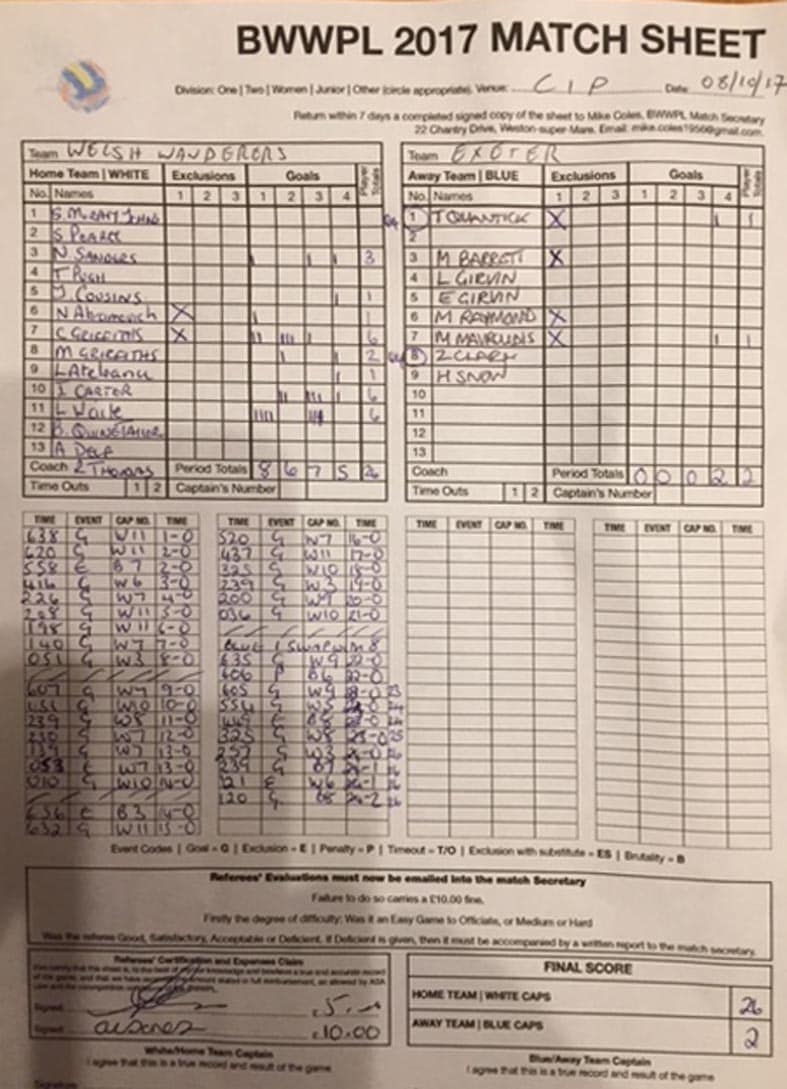 BWWPL 2017 MATCH SHEET
Division: One | Two | Women | Junior | Other (circle appropriate). Venue: CIP Date: 08/10/17
Return within 7 days a completed signed copy of the sheet to Mike Coles, BWWPL Match Secretary
22 Chantry Drive, Weston-super-Mare. Email: mike.coles1956@gmail.com
Team WELSH WANDERERS
Home Team | WHITE Exclusions Goals Player Totals
No. Names 1 2 3 1 2 3 4
1
2 S PEARCE
3 N SANDERS 3
4 T PUGH
5 COUSINS 1
6 N Abramovich X 1
7 C GRIFFITHS X 6
8 M GRIFFITHS 2
9 1
10 CARTER 6
11 L 6
12
13 A
Coach THOMAS Period Totals 8 6 7 5 26
Time Outs 1 2 Captain's Number
Team EXETER
Away Team | BLUE Exclusions Goals Player Totals
No. Names 1 2 3 1 2 3 4
1 T QUANTICK X 1
2
3 M BARRETT X
4 L GIRVIN
5 E GIRVIN
6 M RAYMOND X
7 M MAVROUDIS X 1
8 Z CLARK
9 H SNOW
10
11
12
13
Coach Period Totals 0 0 0 2 2
Time Outs 1 2 Captain's Number
TIME EVENT CAP NO. TIME
638 G W11 1-0
620 G W11 2-0
558 E B7 2-0
416 G W6 3-0
226 G W7 4-0
G W11 5-0
G W11 6-0
140 G W7 7-0
051 G W3 8-0
607 G W7 9-0
G W10 10-0
239 G W8 11-0
230 G W7 12-0
G W7 13-0
053 E W7 13-0
010 G W10 14-0
656 E B3 14-0
632 G W11 15-0
TIME EVENT CAP NO. TIME
520 G W7 16-0
437 G W11 17-0
325 G W10 18-0
239 G W3 19-0
200 G 20-0
036 G W10 21-0
BLUE 1 SWAP W 8
635 G W9 22-0
606 P B6 22-0
605 G
554 G W5
325 G W8
257 G W3
239 G B7
121 E W6
120 G
TIME EVENT CAP NO. TIME
TIME EVENT CAP NO. TIME
Event Codes | Goal = G | Exclusion = E | Penalty = P | Timeout = T/O | Exclusion with substitute = ES | Brutality = B
Referees' Evaluations must now be emailed into the match Secretary
Failure to do so carries a £10.00 fine.
Firstly the degree of difficulty: Was it an Easy Game to Officiate, or Medium or Hard
Was the referee Good, Satisfactory, Acceptable or Deficient. If Deficient is given, then it must be accompanied by a written report to the match secretary.
Referees' Certification and Expenses Claim
Signed
Signed £10.00
FINAL SCORE
HOME TEAM | WHITE CAPS 26
AWAY TEAM | BLUE CAPS 2
White/Home Team Captain
I agree that this is a true record and result of the game
Blue/Away Team Captain
I agree that this is a true record and result of the game
Signature